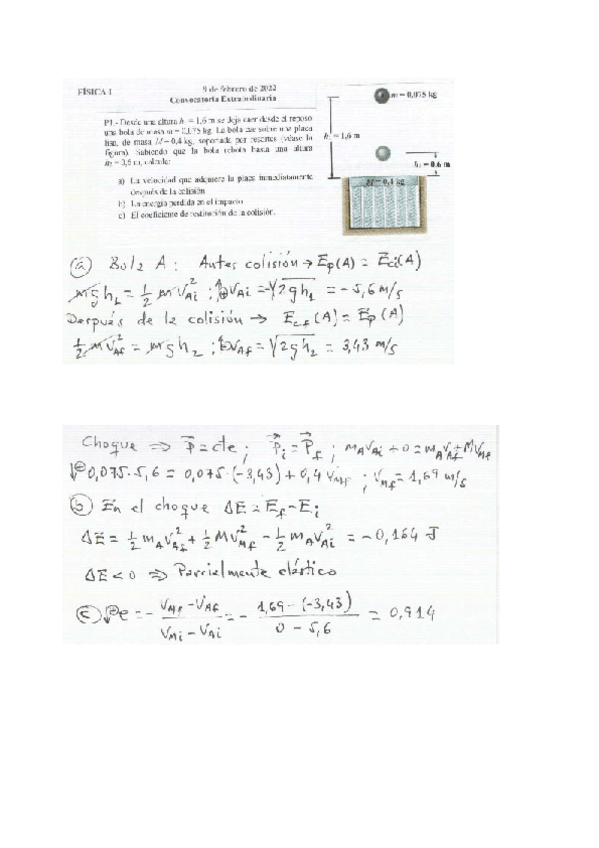 FÍSICA I
9 de febrero de 2022
Convocatoria Extraordinaria
P1.- Desde una altura h₁ = 1,6 m se deja caer desde el reposo
una bola de masa m = 0,075 kg. La bola cae sobre una placa
lisa, de masa M = 0,4 kg, soportada por resortes (véase la
figura). Sabiendo que la bola rebota hasta una altura
h₂ = 0,6 m, calcule:
a) La velocidad que adquiere la placa inmediatamente
después de la colisión
b) La energía perdida en el impacto
c) El coeficiente de restitución de la colisión.
m = 0,075 kg
h₁ = 1,6 m
h₂ = 0,6 m
M = 0,4 kg
(a) Bola A: Antes colisión → Ep(A) = Eci(A)
mgh₁ = 1/2 m vAi²; vAi = √2gh₁ = -5,6 m/s
Después de la colisión → Ecf(A) = Ep(A)
1/2 m vAf² = mgh₂; vAf = √2gh₂ = 3,43 m/s
Choque ⇒ p⃗ = cte; p⃗i = p⃗f; mAvAi + 0 = mAvAf + MvMf
0,075·5,6 = 0,075·(-3,43) + 0,4 vMf; vMf = 1,69 m/s
(b) En el choque ΔE = Ef - Ei
ΔE = 1/2 mA vAf² + 1/2 M vMf² - 1/2 mA vAi² = -0,164 J
ΔE < 0 ⇒ Parcialmente elástico
(c) e = - (vMf - vAf)/(vMi - vAi) = - (1,69 - (-3,43))/(0 - 5,6) = 0,914